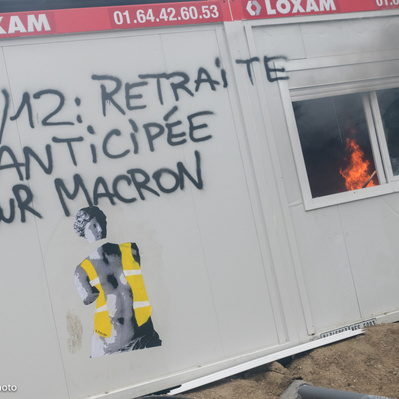 XAM 01.64.42.60.53 LOXAM 01.6
/12: RETRAITE
ANTICIPÉE
UR MACRON
hoto